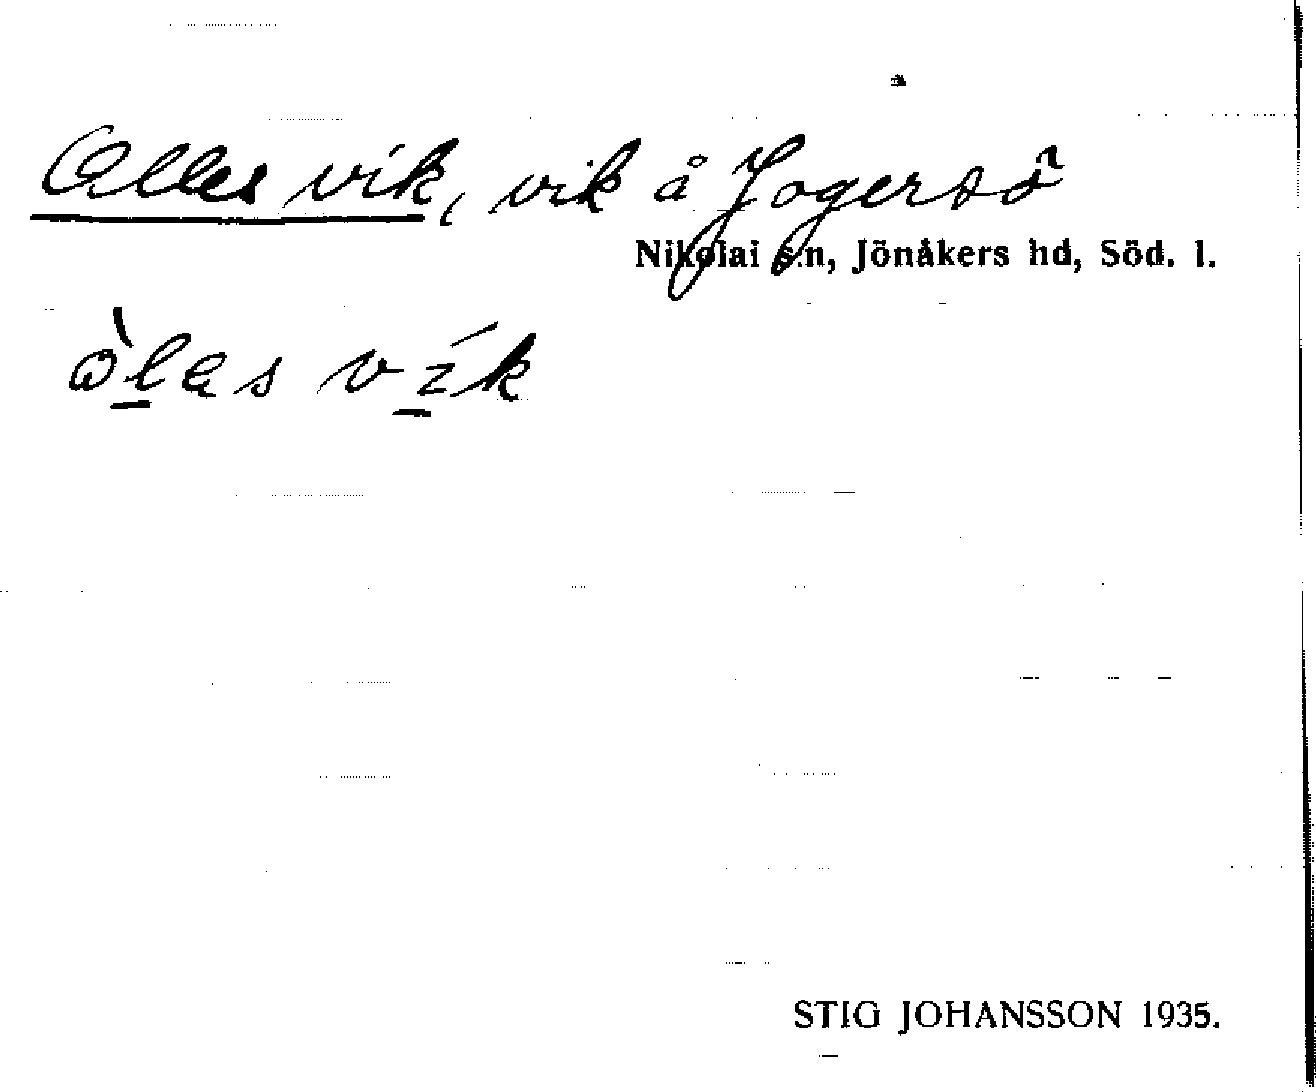 Alles vik, vik å Jogersö
Nikolai s:n, Jönåkers hd, Söd. l.
àlas vík
STIG JOHANSSON 1935.